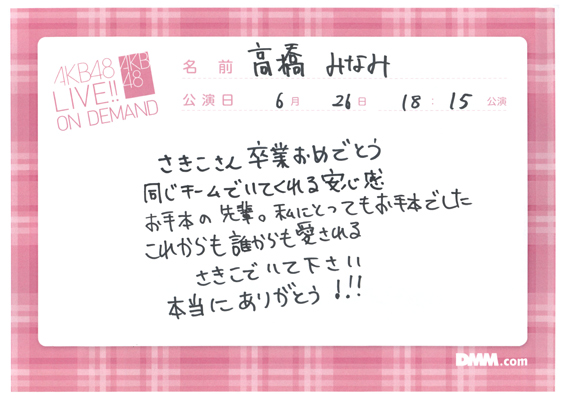 AKB48
LIVE!!
ON DEMAND
AKB
48
名前 高橋 みなみ
公演日 6月 26日 18:15 公演
さきこさん 卒業おめでとう
同じチームでいてくれる安心感
お手本の先輩。私にとってもお手本でした
これからも誰からも愛される
さきこでいて下さい
本当にありがとう!!!
DMM.com